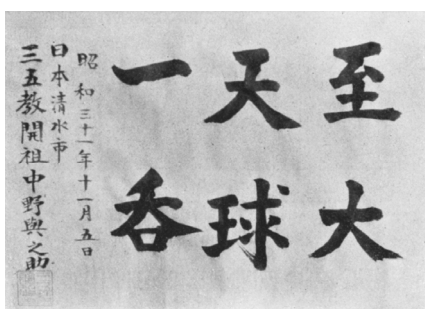 至大
天球
一呑
昭和三十一年十一月五日
日本清水市
三五教開祖中野與之助